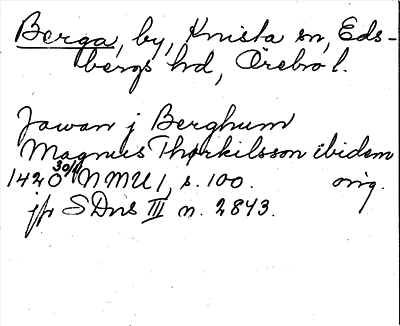 Berga, by, Knista sn, Eds-
bergs hd, Örebro l.
Jawan j Berghum
Magnus Thorkilsson ibidem
1420 30/1 NMU 1, s. 100. orig.
jfr SDns III n. 2843.